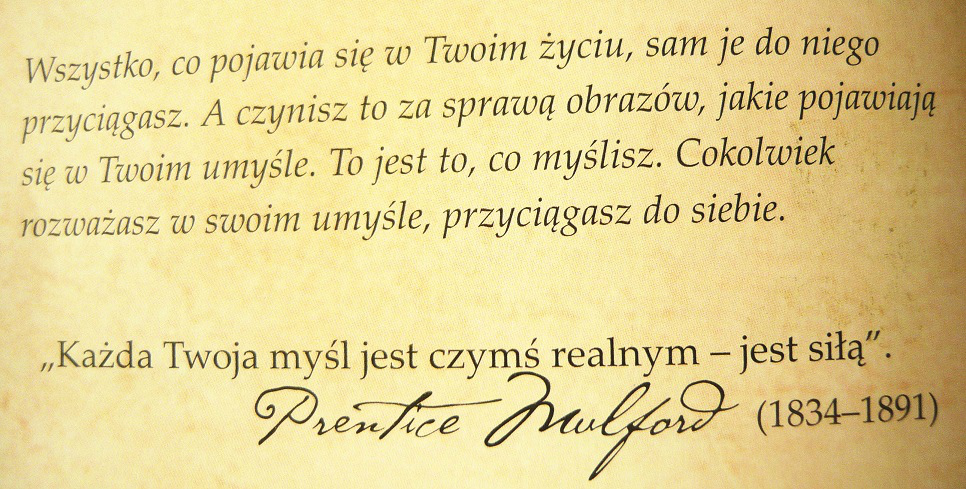 Wszystko, co pojawia się w Twoim życiu, sam je do niego
przyciągasz. A czynisz to za sprawą obrazów, jakie pojawiają
się w Twoim umyśle. To jest to, co myślisz. Cokolwiek
rozważasz w swoim umyśle, przyciągasz do siebie.
„Każda Twoja myśl jest czymś realnym – jest siłą”.
Prentice Mulford (1834–1891)